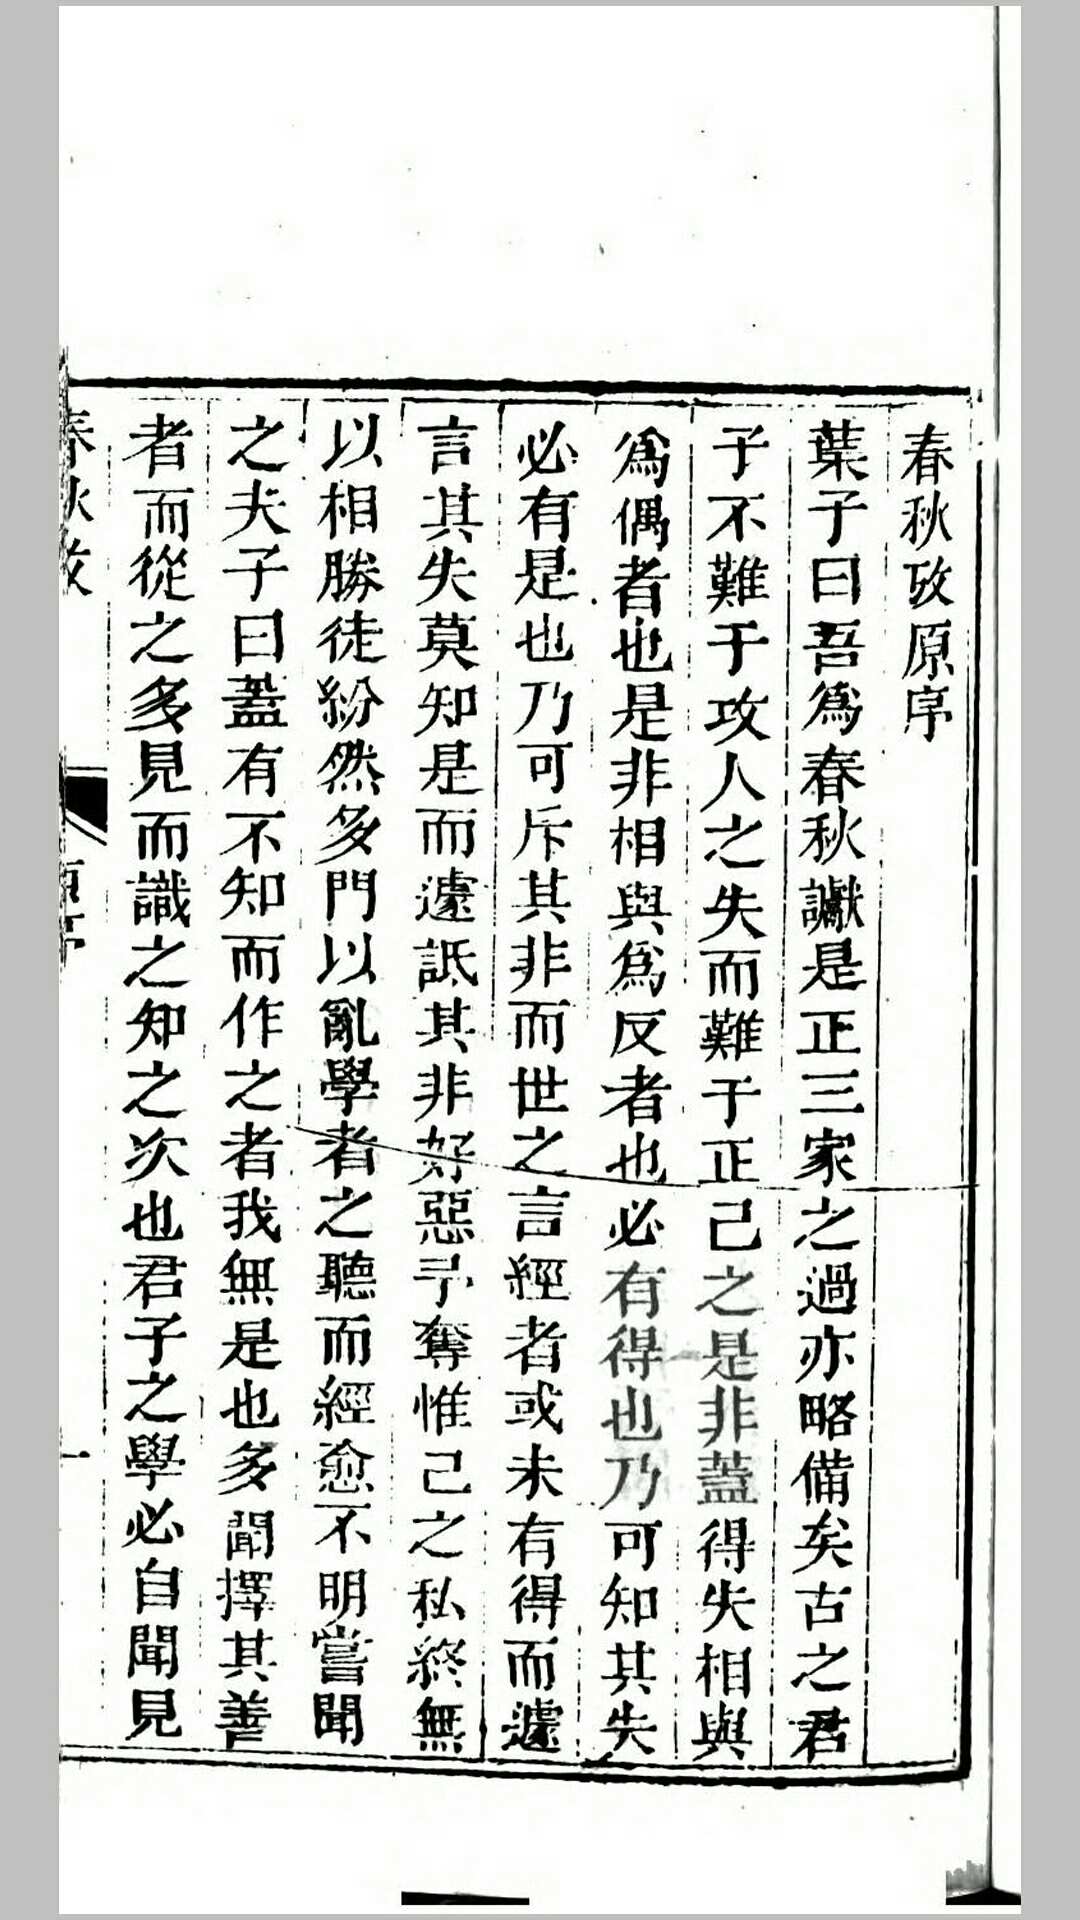 春秋攷原序
葉子曰吾爲春秋讞是正三家之過亦略備矣古之君
子不難于攻人之失而難于正己之是非蓋得失相與
爲偶者也是非相與爲反者也必有得也乃可知其失
必有是也乃可斥其非而世之言經者或未有得而遽
言其失莫知是而遽詆其非好惡予奪惟己之私終無
以相勝徒紛然多門以亂學者之聽而經愈不明嘗聞
之夫子曰蓋有不知而作之者我無是也多聞擇其善
者而從之多見而識之知之次也君子之學必自聞見
春秋攷
原序
一